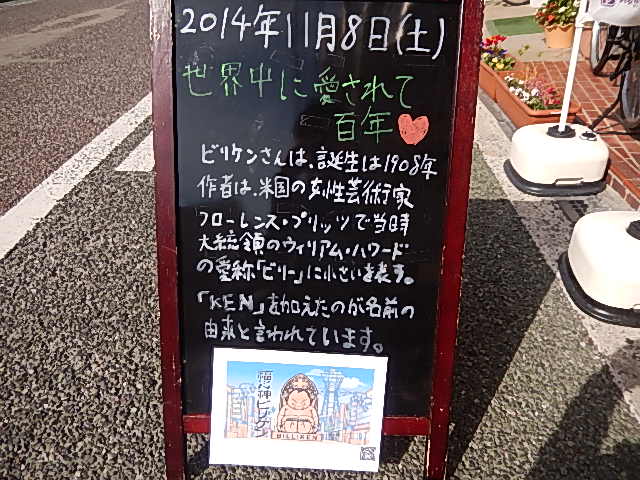 2014年11月8日(土)
世界中に愛されて
百年
ビリケンさんは、誕生は1908年
作者は、米国の女性芸術家
フローレンス・プリッツで当時
大統領のウィリアム・ハワード
の愛称「ビリー」に小さいを表す。
「KEN」を加えたのが名前の
由来と言われています。
福の神ビリケン
BILLIKEN